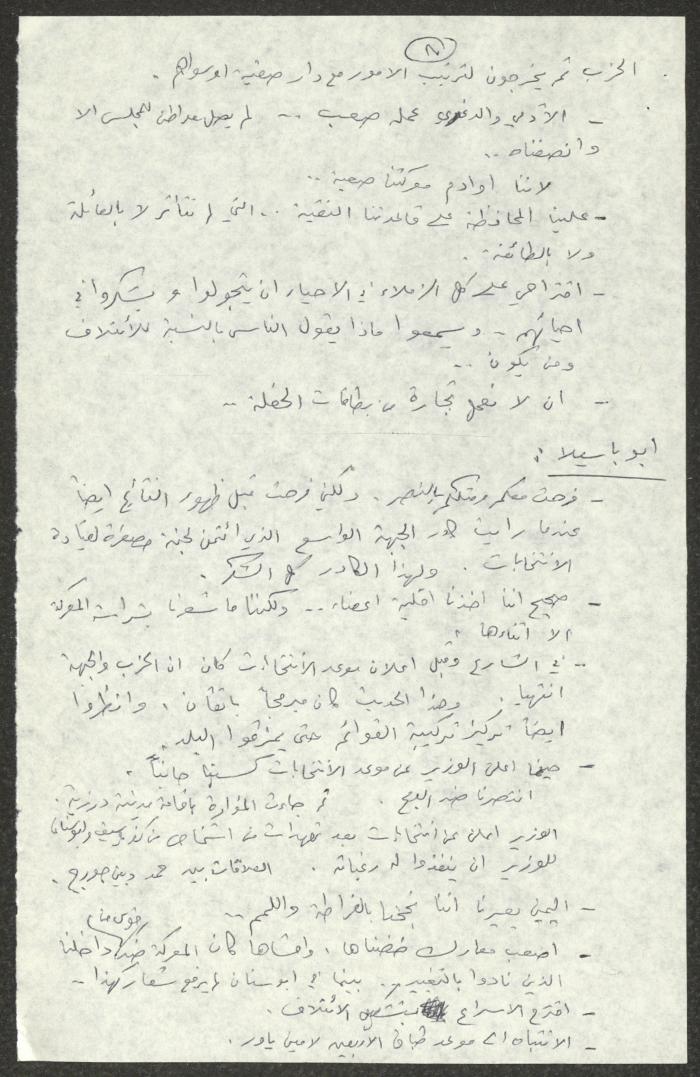 (٨)
الحزب ثم يخرجون لترتيب الامور مع دار صفية او سواهم .
- الآدمي والدغري عمله صعب .. لم يصل مواطن للمجلس الا
وانصفناه ..
لاننا اوادم معركتنا صعبة ..
- علينا المحافظة على قاعدتنا النقية .. التي لم تتأثر لا بالعائلة
ولا بالطائفة .
- اقتراحي على كل الزملاء في الاحياء ان يتجولوا و يشكروا في
احيائهم - ويسمعوا ماذا يقول الناس بالنسبة للأئتلاف
ومن يكون ..
- ان لا نعمل تجارة من بطاقات الحفلة ..
ابو باسيلا :
- فرحت معكم ومثلكم بالنصر . ولكني فرحت قبل ظهور النتائج ايضاً
عندما رأيت كادر الجبهة الواسع الذي ائتمن لجنة مصغرة لقيادة
الانتخابات . ولهذا الكادر كل الشكر .
- صحيح اننا اخذنا اقلية اعضاء .. ولكننا ما شعرنا بشراسة المعركة
الا اثناءها .
- في الشارع وقبل اعلان موعد الانتخابات كان ان الحزب والجبهة
انتهيا . وهذا الحديث كان مبرمجاً باتقان . وانظروا
ايضاً تركيز تركيبة القوائم حتى يمزقوا البلد .
- حينما اعلن الوزير عن موعد الانتخابات
انتصرنا ضد الدمج . ثم جاءت المؤامرة باقامة مدينة درزية .
الوزير اعلن عن انتخابات بعد تعهدات من اشخاص من كفرياسيف وابوسنان
للوزير ان ينفذوا له رغباته . العلاقات بين حمد وبين جورج .
- اليمين يعيرنا اننا نجحنا بالفراطة واللمم ..
- اصعب معارك خضناها . واقساها كان المعركة ضد قوى من داخلنا
الذين نادوا بالتغيير .. بينما في ابوسنان لم يرفع شعار كهذا -
- اقترح الاسراع بتشكيل الائتلاف .
- الانتباه الى موعد الاربعين لامين ياور .